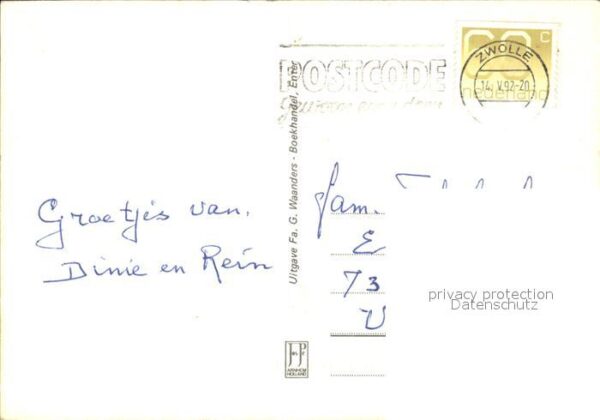 Groetjes van.
Binie en Rein
Uitgave Fa. G. Waanders - Boekhandel, Enter
POSTCODE
ZWOLLE
14. V.92-20
60 C
nederland
fam.
E
73
V
privacy protection
Datenschutz
JosPé
ARNHEM
HOLLAND